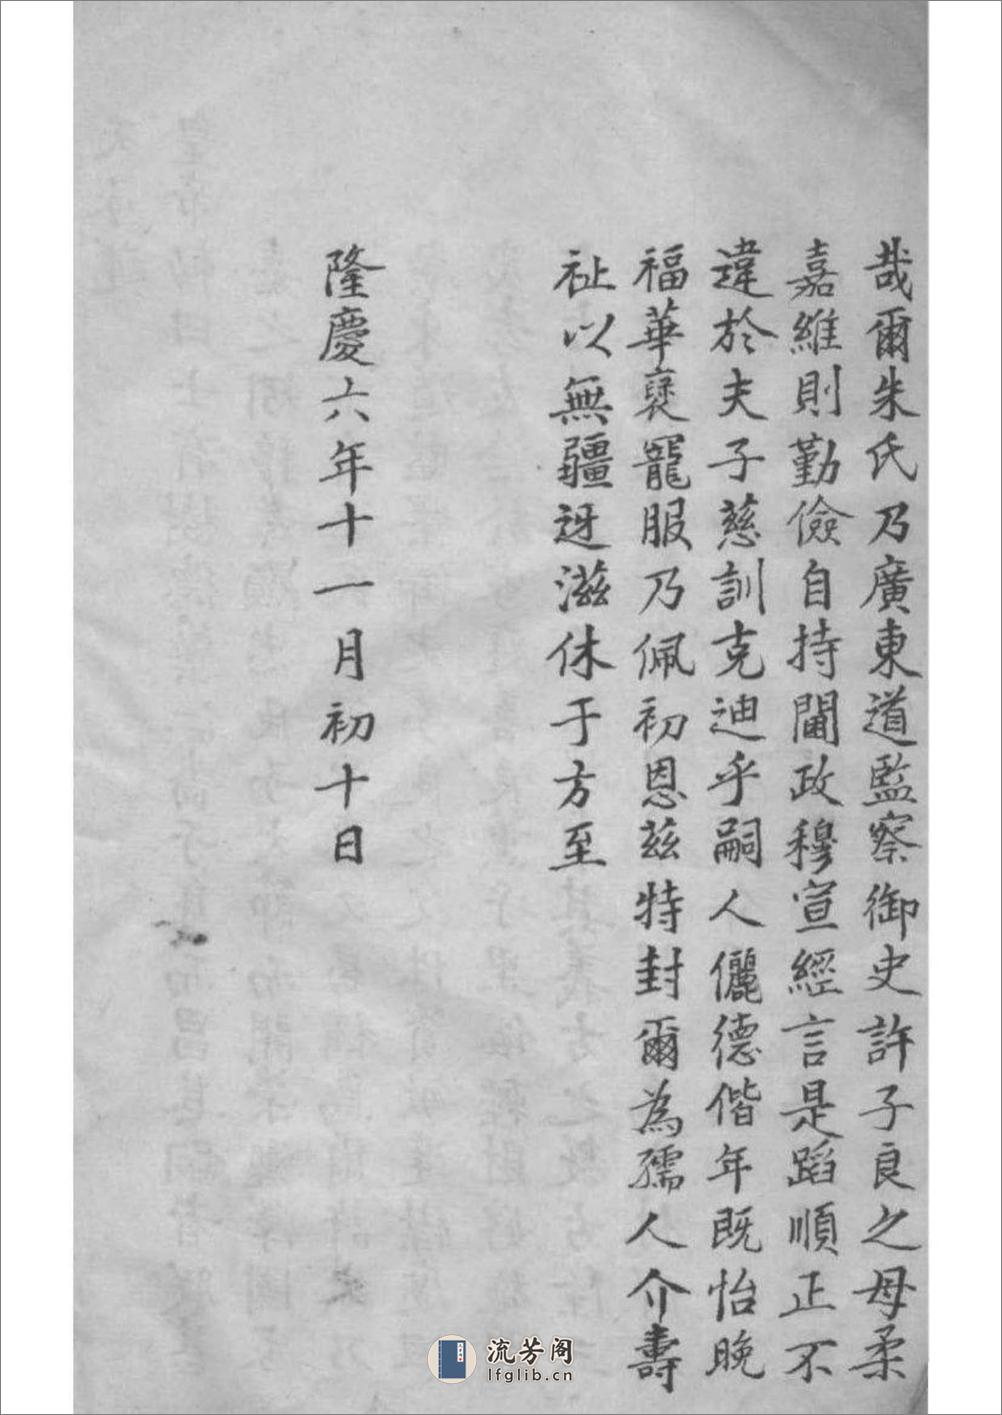 哉爾朱氏乃廣東道監察御史許子良之母柔
嘉維則勤儉自持閫政穆宣經言是蹈順正不
違於夫子慈訓克迪乎嗣人儷德偕年既怡晚
福華褎寵服乃佩初恩茲特封爾為孺人介壽
祉以無疆迓滋休于方至
隆慶六年十一月初十日
流芳阁
lfglib.cn